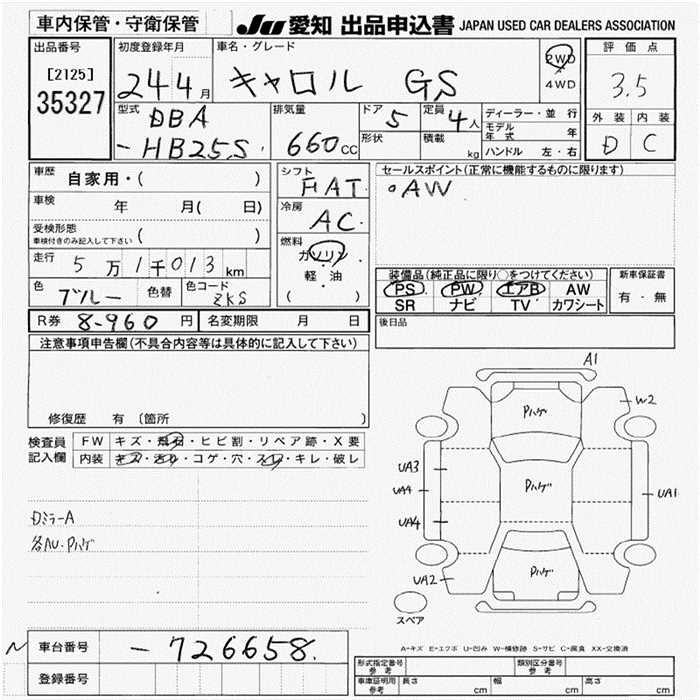 車内保管・守衛保管
JU 愛知 出品申込書 JAPAN USED CAR DEALERS ASSOCIATION
出品番号
[2125]
35327
初度登録年月
24 4月
車名・グレード
キャロル GS
2WD
4WD
評価点
3.5
外装 内装
D C
型式
DBA
-HB25S
排気量
660cc
ドア 5
定員 4人
形状
積載 kg
ディーラー・並行
モデル年式 年
ハンドル 左・右
車歴 自家用・( )
車検 年 月( 日)
受検形態
車検付きのみ記入して下さい ( )
走行 5万1千013km
色 ブルー 色替 色コード ZKS
シフト FAT
冷房 AC
燃料
ガソリン
軽・油
( )
セールスポイント(正常に機能するものに限ります)
。AW
装備品(純正品に限り○をつけてください)
PS PW エアB AW
SR ナビ TV カワシート
新車保証書
有・無
R券 8-960円 名変期限 月 日
後日品
注意事項申告欄(不具合内容等は具体的に記入して下さい)
修復歴 有 〔箇所 〕
検査員記入欄
FW キズ・飛石・ヒビ割・リペア跡・X要
内装 キズ・汚れ・コゲ・穴・スレ・キレ・破レ
DミラーA
各AU・Pハゲ
A1
W2
Pハゲ
UA3
UA4
Pハゲ
UA1
UA4
UA2
Pハゲ
スペア
A-キズ E-エクボ U-凹み W-補修跡 S-サビ C-腐食 XX-交換済
N
車台番号 -726658.
登録番号
形式指定番号 参考
類別区分番号 参考
車庫証明用 参考 長さ cm 幅 cm 高さ cm